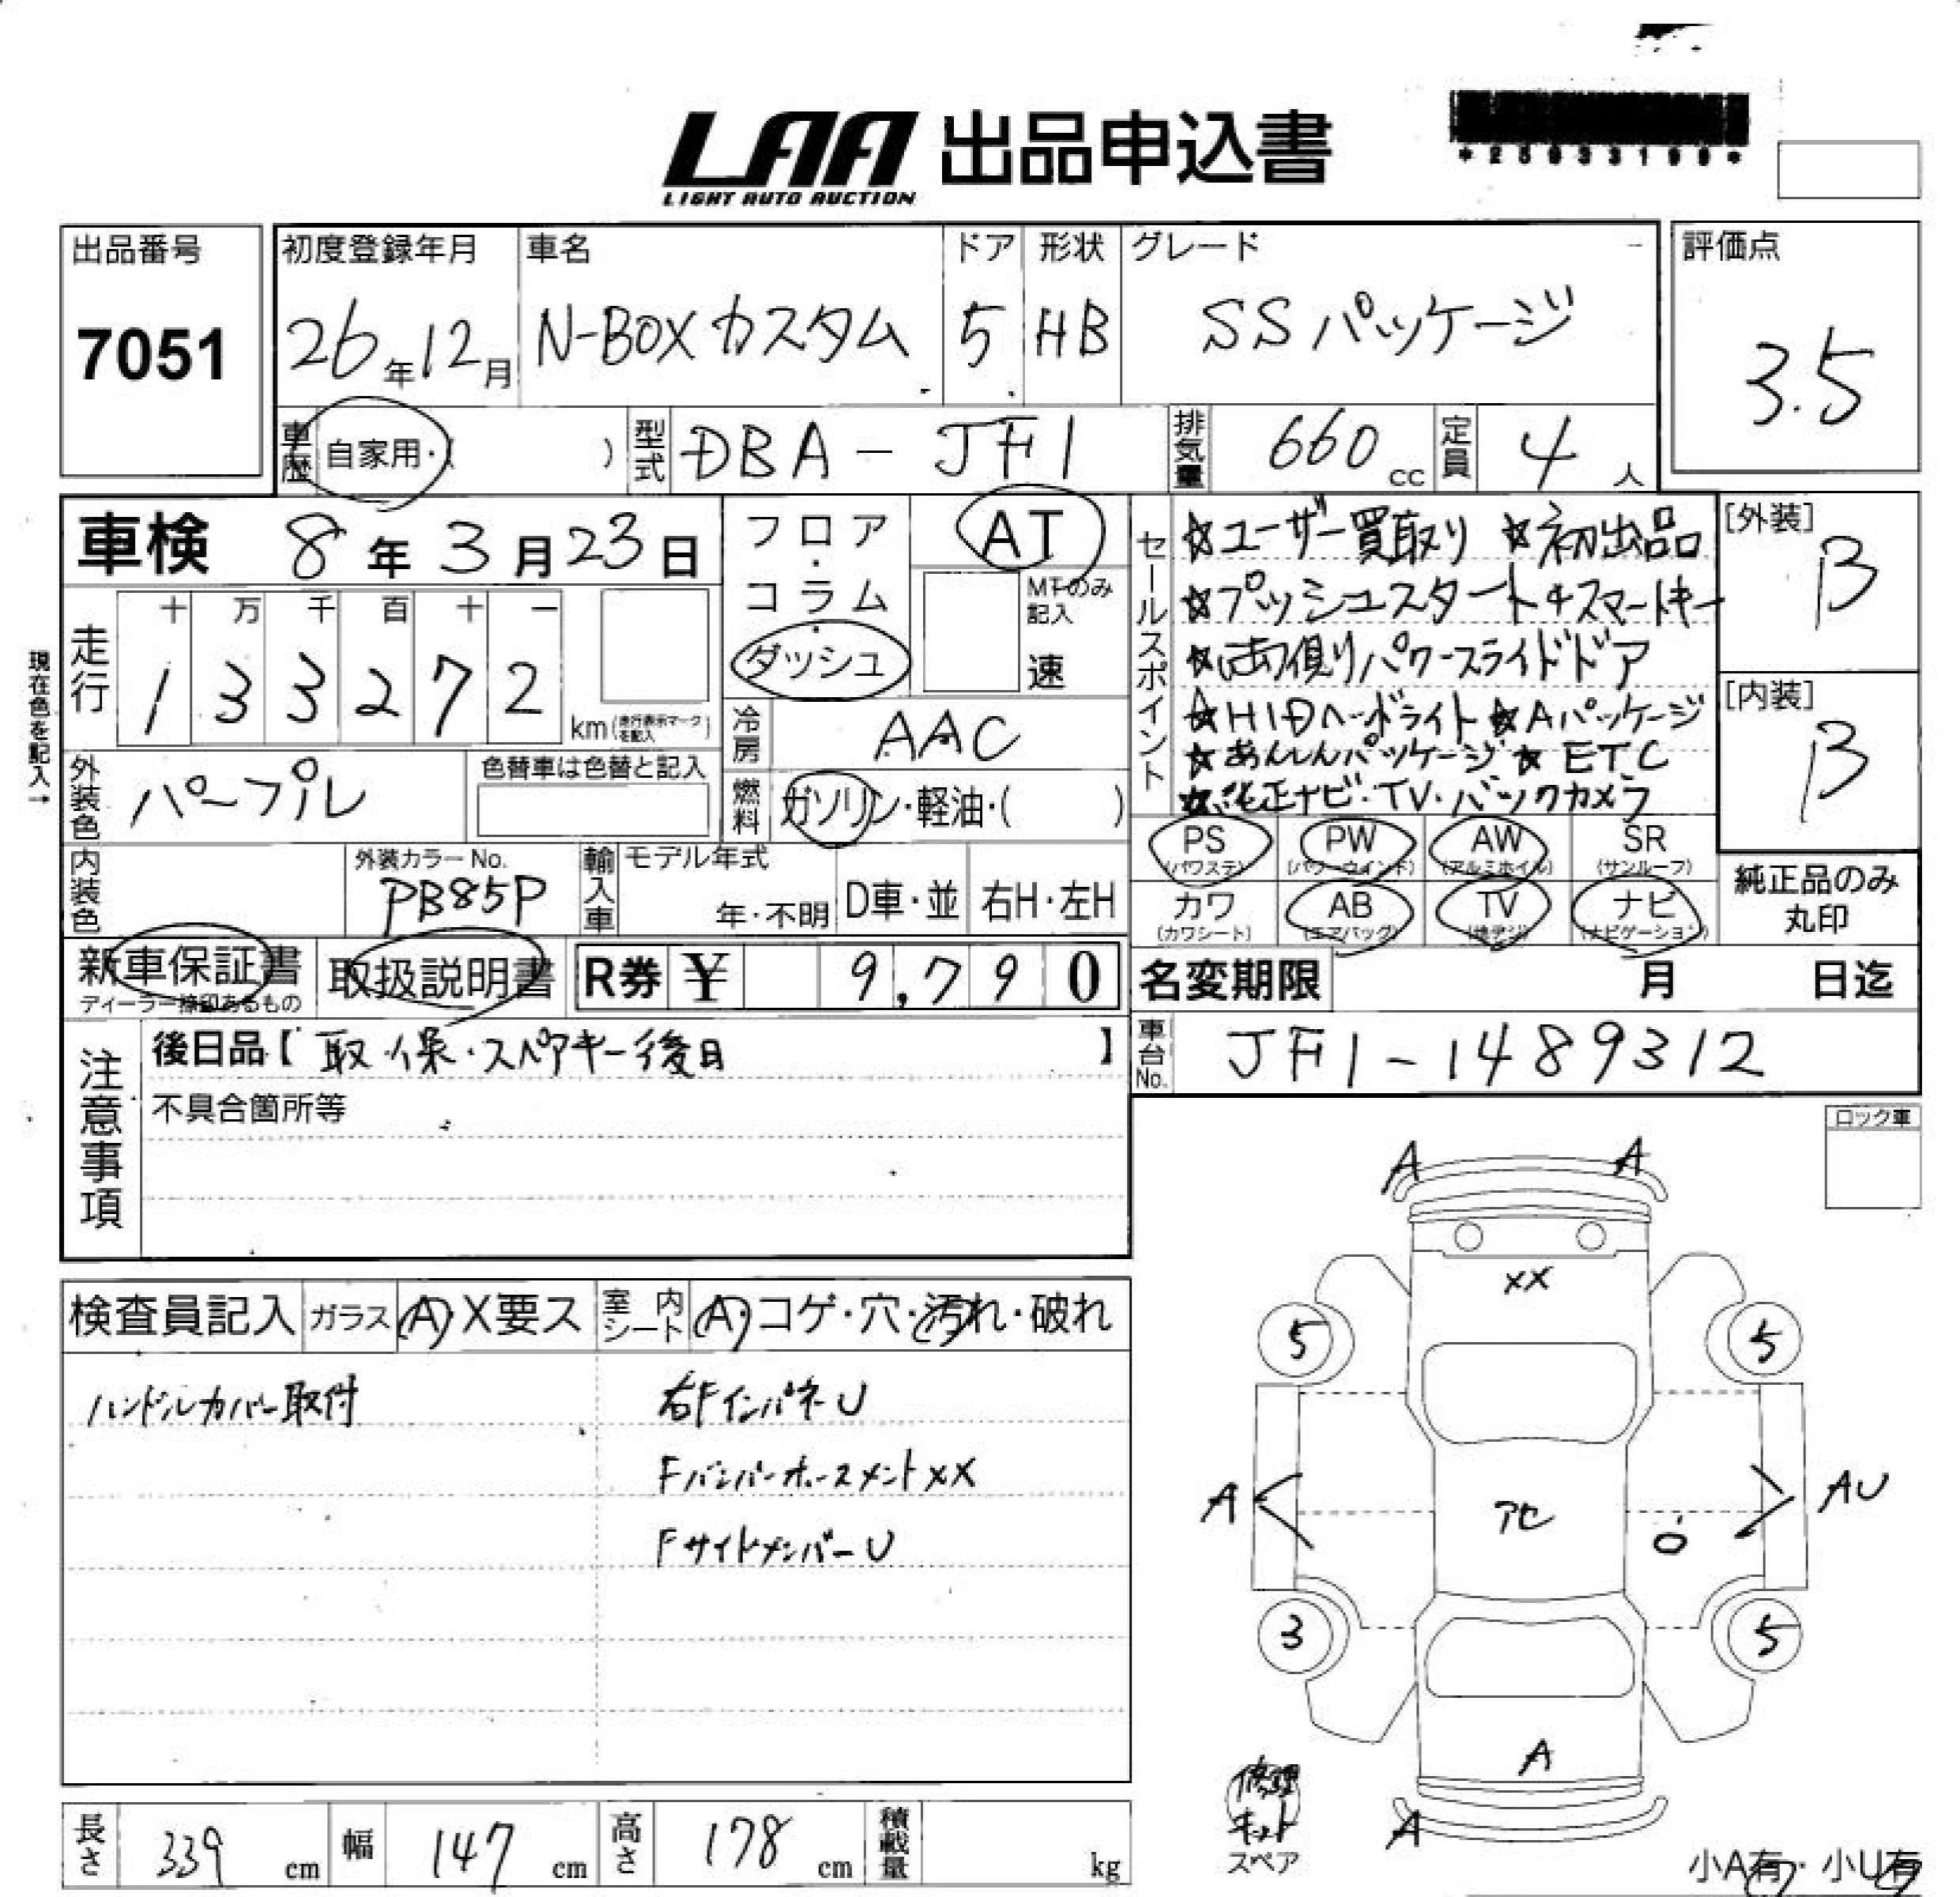 LAA 出品申込書
LIGHT AUTO AUCTION
*25033199*
出品番号
7051
初度登録年月
26年12月
車名
N-BOXカスタム
ドア
5
形状
HB
グレード
SSパッケージ
評価点
3.5
車歴
自家用・( )
型式
DBA-JF1
排気量
660cc
定員
4人
車検 8年3月23日
フロア・コラム・ダッシュ
AT
MTのみ記入
速
セールスポイント
☆ユーザー買取り ☆初出品
☆プッシュスタート+スマートキー
☆両側パワースライドドア
☆HIDヘッドライト ☆Aパッケージ
☆あんしんパッケージ ☆ETC
☆純正ナビ・TV・バックカメラ
[外装]
B
[内装]
B
現在色を記入→
走行
十 万 千 百 十 一
1 3 3 2 7 2
km(走行表示マークを記入)
冷房
AAC
外装色
パープル
色替車は色替と記入
燃料
ガソリン・軽油・( )
PS
(パワステ)
PW
(パワーウインド)
AW
(アルミホイル)
SR
(サンルーフ)
内装色
外装カラーNo.
PB85P
輸入車
モデル年式
年・不明
D車・並
右H・左H
カワ
(カワシート)
AB
(エアバッグ)
TV
(地デジ)
ナビ
(ナビゲーション)
純正品のみ
丸印
新車保証書
ディーラー捺印あるもの
取扱説明書
R券 ¥ 9,790
名変期限 月 日迄
注意事項
後日品【取・保・スペアキー後日】
不具合箇所等
車台No.
JF1-1489312
ロック車
検査員記入
ガラス
A・X要ス
室内シート
A・コゲ・穴・汚れ・破れ
ハンドルカバー取付
右FインパネU
FバンパーホースメントXX
FサイドメンバーU
A A
XX
5 5
A
アセ
AU
3 5
A
A
修理キット
スペア
小A有・小U有
長さ
339cm
幅
147cm
高さ
178cm
積載量
kg